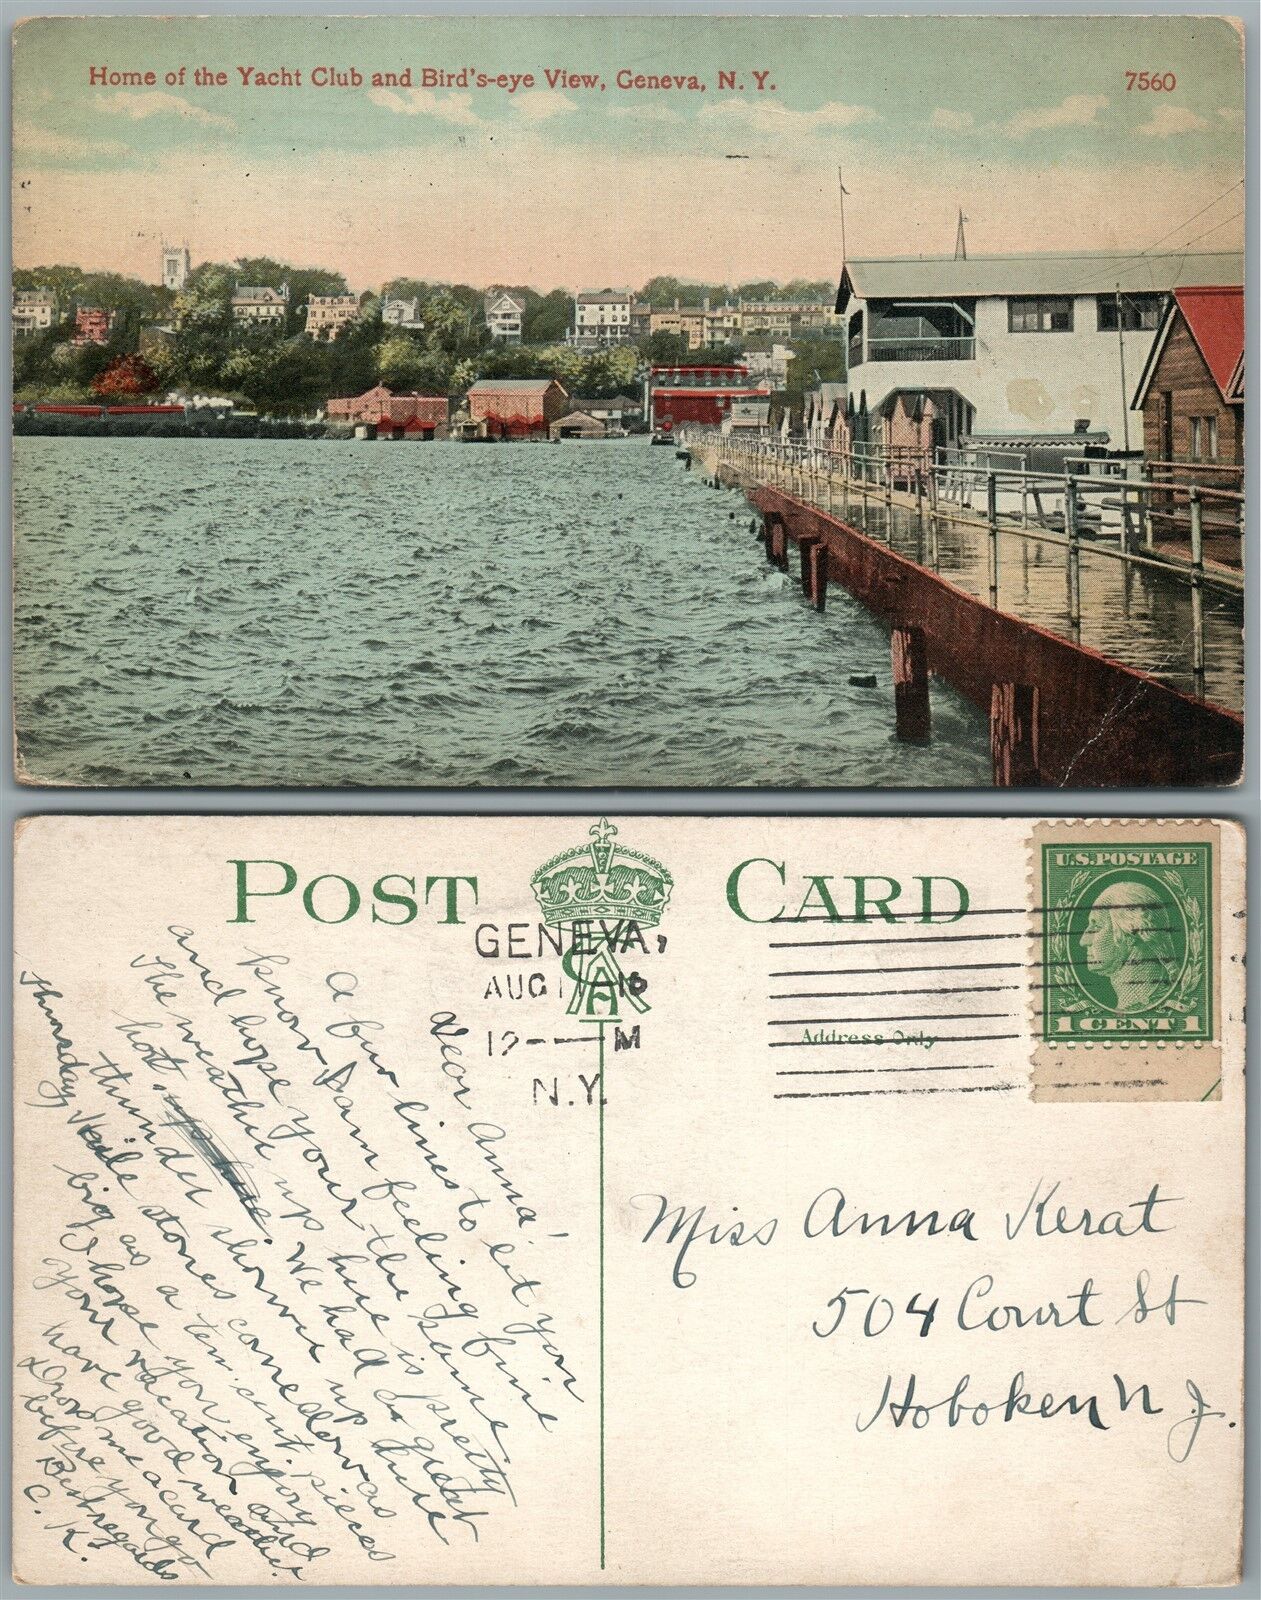 Home of the Yacht Club and Bird's-eye View, Geneva, N. Y.
7560
POST CARD
GENEVA,
AUG 11 16
12 — M
N.Y.
U.S. POSTAGE
1 CENT 1
Address Only
Dear Anna!
A few lines to let you
know I am feeling fine
and hope your the same
The weather up here is pretty
hot. We had a great
thunder shower up here
Thursday, Haile stones came down as
big as a ten cent pieces
I hope you enjoy
your vacation and
have good weather.
Drop me a card
before you go
Best regards
C. K.
Miss Anna Kerat
504 Court St
Hoboken N. J.